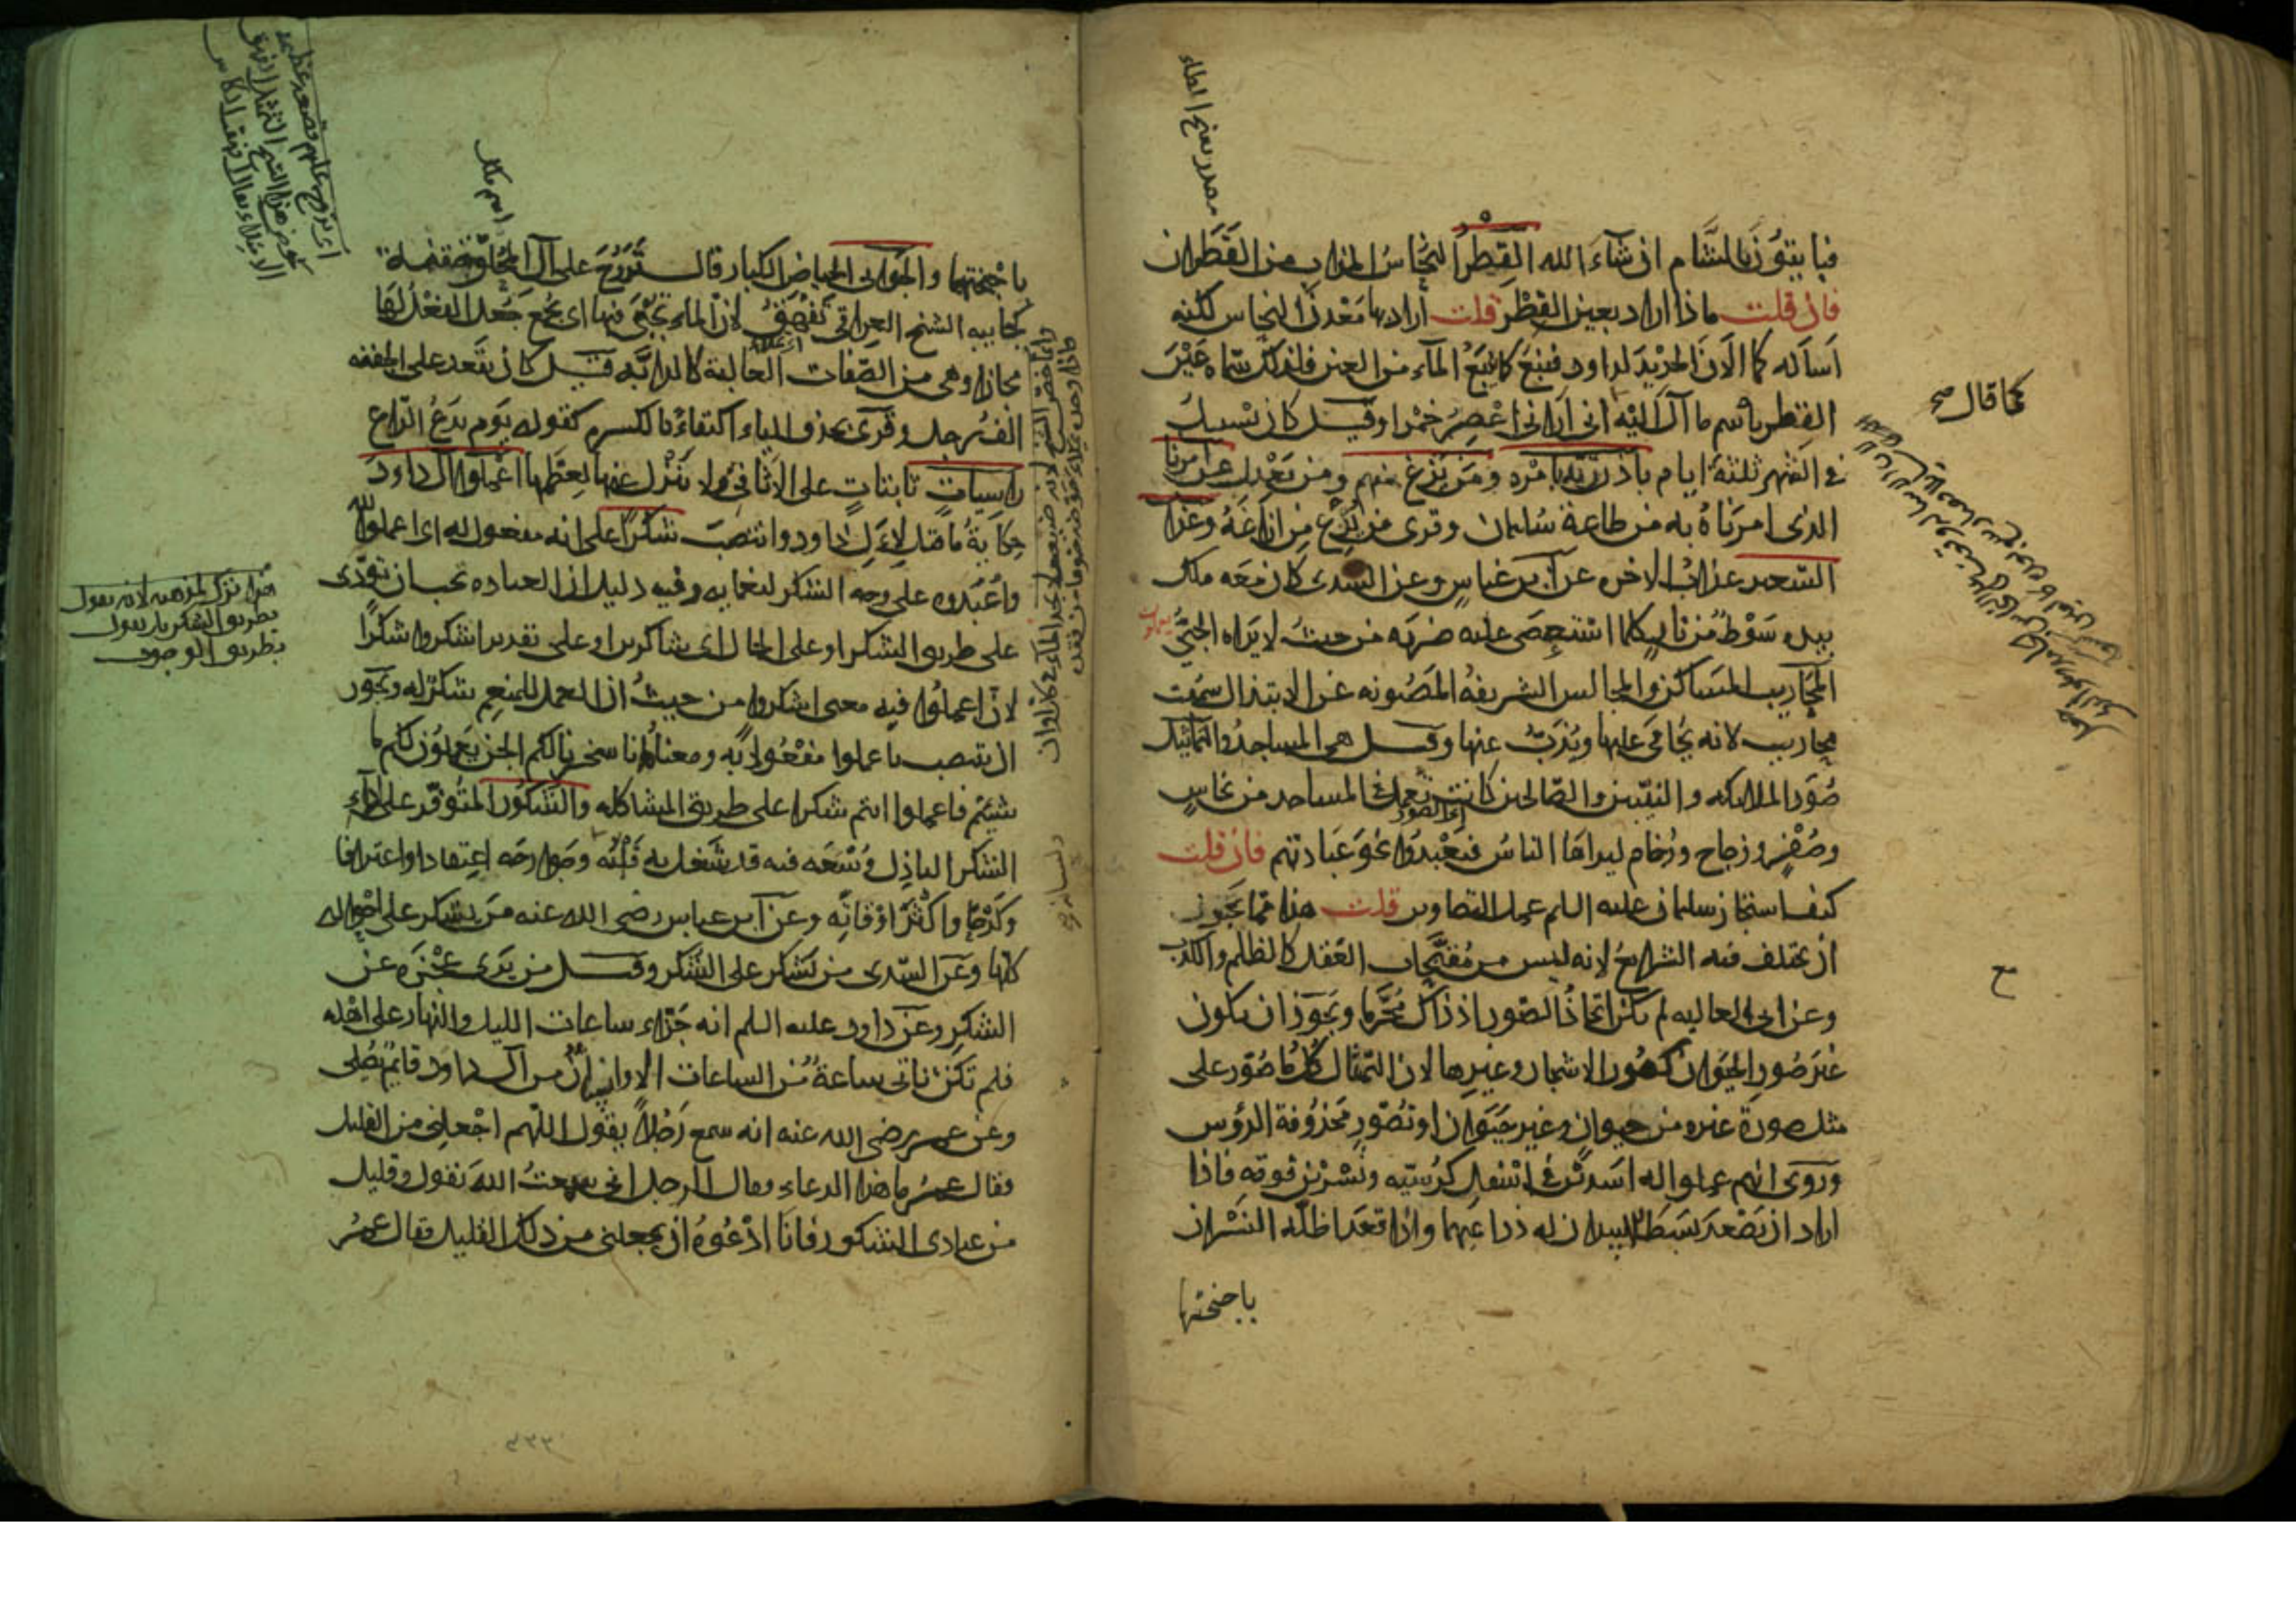 فبايتون بالشام ان شاء الله القطر النحاس المذاب من القطران
فان قلت ماذا اراد بعين القطر قلت اراد بها معدن النحاس لكنه
اساله كما الان الحديد لداود فنبع كما ينبع الماء من العين فلذلك سماه عين
القطر باسم ما آل اليه اني اراني اعصر خمرا وقيل كان يسيل
كما قال صح
في الشهر ثلثة ايام باذن ربه بامره ومن يزغ منهم ومن يعدل عن امرنا
الذى امرناه به من طاعة سليمان وقرى من يزغ من ازاغه وعذاب
السعير عذاب الاخره عن ابن عباس وعن السدى كان معه ملك
بيده سوط من نار كلما استعصى عليه ضربه من حيث لا يراه الجني
المحاريب المساكن والمجالس الشريفة المصونه عن الابتذال سميت
محاريب لانه يحامى عليها ويذب عنها وقيل هى المساجد والتماثيل
صور الملائكه والنبيين والصالحين كانت تعمل في المساجد من نحاس
وصفر وزجاج ورخام ليراها الناس فيعبدوا نحو عبادتهم فان قلت
كيف استجاز سليمان عليه السلم عمل التصاوير قلت هذا مما يجوز
ان يختلف فيه الشرايع لانه ليس من مقبحات العقل كالظلم والكذب
وعن ابى العاليه لم يكن اتخاذ الصور اذ ذاك محرما ويجوز ان يكون
غير صور الحيوان كصور الاشجار وغيرها لان التمثال كل ما صور على
مثل صورة غيره من حيوان وغير حيوان او تصور محذوفة الرؤس
وروى انهم عملوا له اسدين في اسفل كرسيه ونسرين فوقه فاذا
اراد ان يصعد بسط الاسدان له ذراعيهما واذا قعد اظله النسران
باجنحتها
مصدر بفتح الطاء
باجنحتهما والجوابى الحياض الكبار قال تروح على آل المحلق جفنة
كجابيه الشيخ العراقى تفهق لان الماء يجبى فيها اى يجمع جعل الفعل لها
مجازا وهى من الصفات الغالبة كالدابه قيل كان يقعد على الجفنه
الف رجل وقرى بحذف الياء اكتفاء بالكسره كقوله يوم يدع الداع
راسيات ثابتات على الاثافى لا تنزل عنها لعظمها اعملوا آل داود
حكاية ما قيل لآل داود وانتصب شكرا على انه مفعول له اى اعملوا لله
واعبدوه على وجه الشكر لنعمايه وفيه دليل ان العباده يجب ان تودى
على طريق الشكر او على الحال اى شاكرين او على تقدير اشكروا شكرا
لان اعملوا فيه معنى اشكروا من حيث ان العمل للمنعم شكر له ويجوز
ان ينتصب باعملوا مفعولا به ومعناه انا سخرنا لكم الجن يعملون لكم ما
شيتم فاعملوا انتم شكرا على طريق المشاكله والشكور المتوفر على اداء
الشكر الباذل وسعه فيه قد شغل به قلبه وجوارحه اعتقادا واعترافا
وكدحا واكثر اوقاته وعن ابن عباس رضى الله عنه من يشكر على احواله
كلها وعن السدى من يشكر على الشكر وقيل من يرى عجزه عن
الشكر وعن داود عليه السلم انه جزا ساعات الليل والنهار على اهله
فلم تكن تاتى ساعة من الساعات الا وانسان من آل داود قايم يصلى
وعن عمر رضى الله عنه انه سمع رجلا يقول اللهم اجعلنى من القليل
فقال عمر ما هذا الدعاء وقال الرجل انى سمعت الله يقول وقليل
من عبادى الشكور فانا ادعوه ان يجعلنى من ذلك القليل فقال عمر
اسم ملك
بطريق الشكر بل يقول
بطريق الوجوب